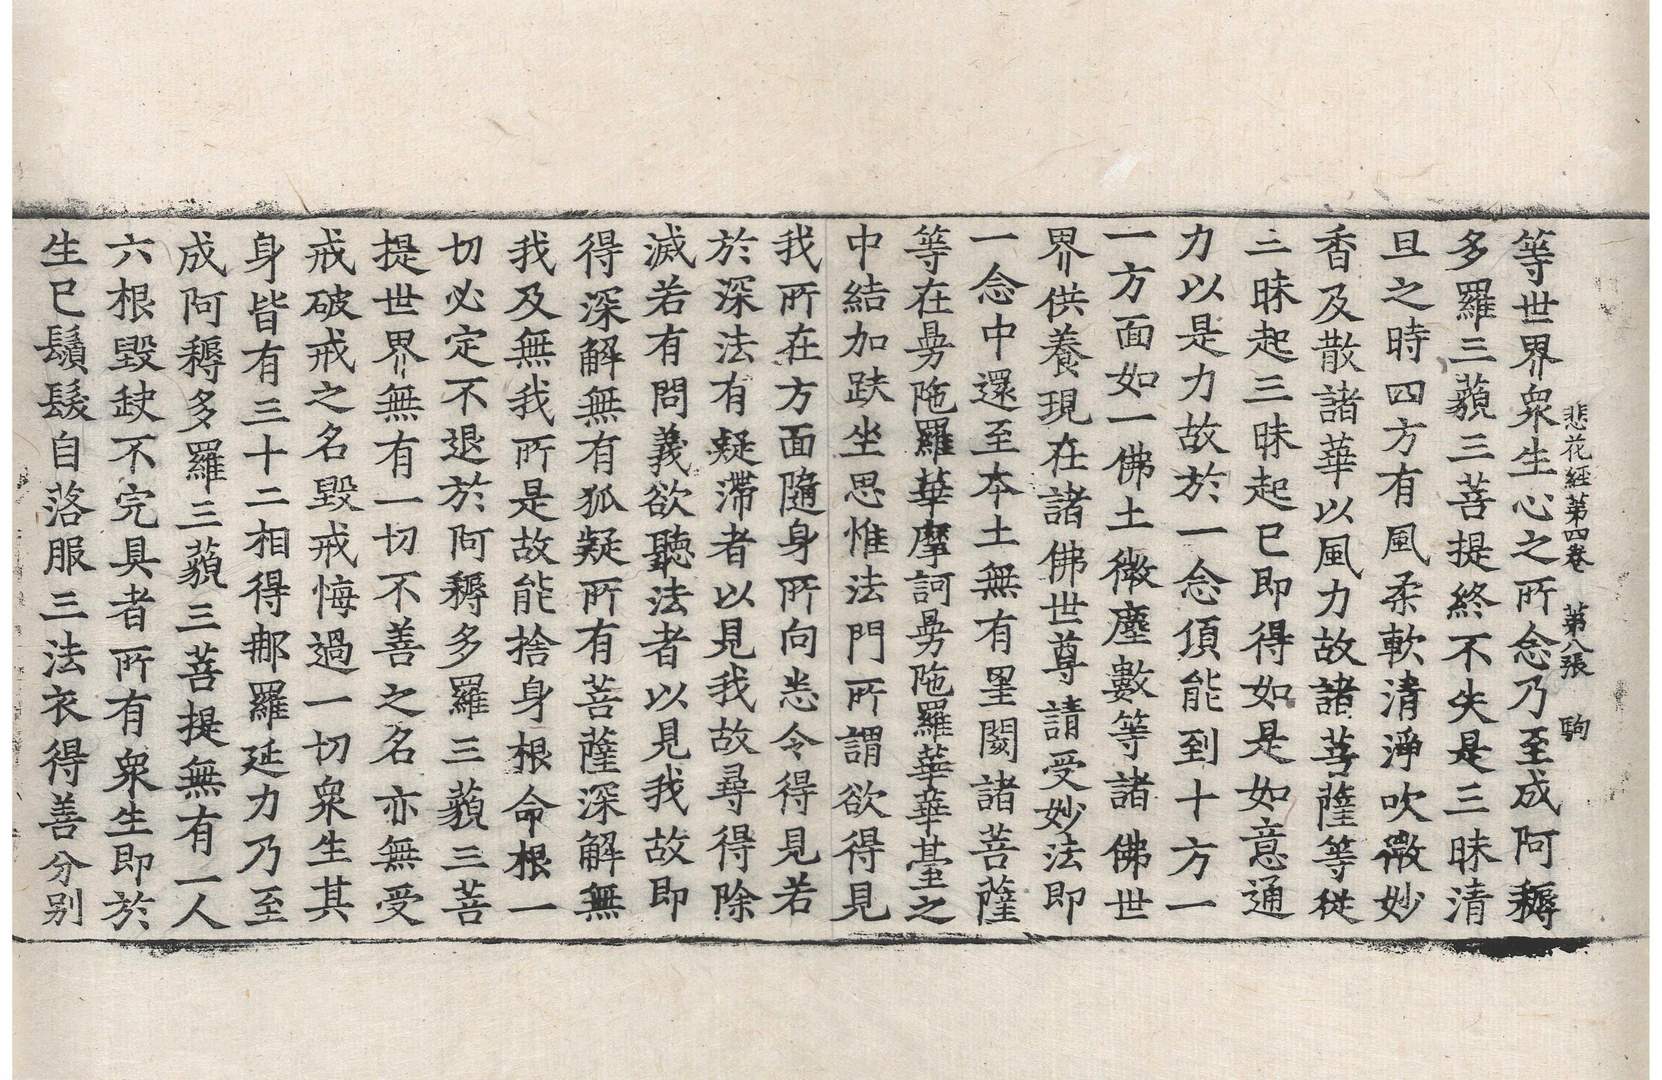 悲花經第四卷　第八張　駒
等世界衆生心之所念乃至成阿耨
多羅三藐三菩提終不失是三昧清
旦之時四方有風柔軟清淨吹微妙
香及散諸華以風力故諸菩薩等從
三昧起三昧起已即得如是如意通
力以是力故於一念頃能到十方一
一方面如一佛土微塵數等諸佛世
界供養現在諸佛世尊請受妙法即
一念中還至本土無有罣閡諸菩薩
等在曼陁羅華摩訶曼陁羅華華臺之
中結加趺坐思惟法門所謂欲得見
我所在方面隨身所向悉令得見若
於深法有疑滯者以見我故尋得除
滅若有問義欲聽法者以見我故即
得深解無有狐疑所有菩薩深解無
我及無我所是故能捨身根命根一
切必定不退於阿耨多羅三藐三菩
提世界無有一切不善之名亦無受
戒破戒之名毀戒悔過一切衆生其
身皆有三十二相得那羅延力乃至
成阿耨多羅三藐三菩提無有一人
六根毀缺不完具者所有衆生即於
生已鬚髮自落服三法衣得善分別